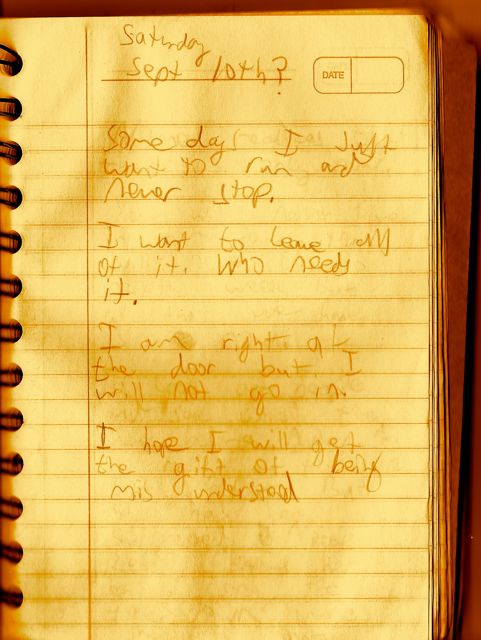 Saturday
Sept 10th?
DATE
Some days I Just
want to run and
never stop.
I want to leave all
of it. Who needs
it.
I am right at
the door but I
will not go in.
I hope I will get
the gift of being
mis understood